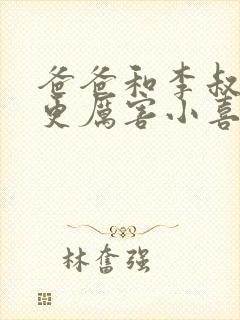 爸爸和李叔
更厉害小喜
林奮强